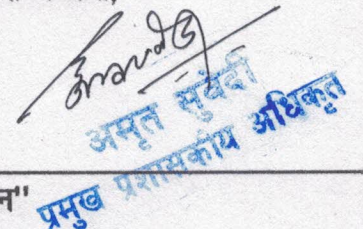 अमृत सुवेदी
प्रमुख प्रशासकीय अधिकृत
न"